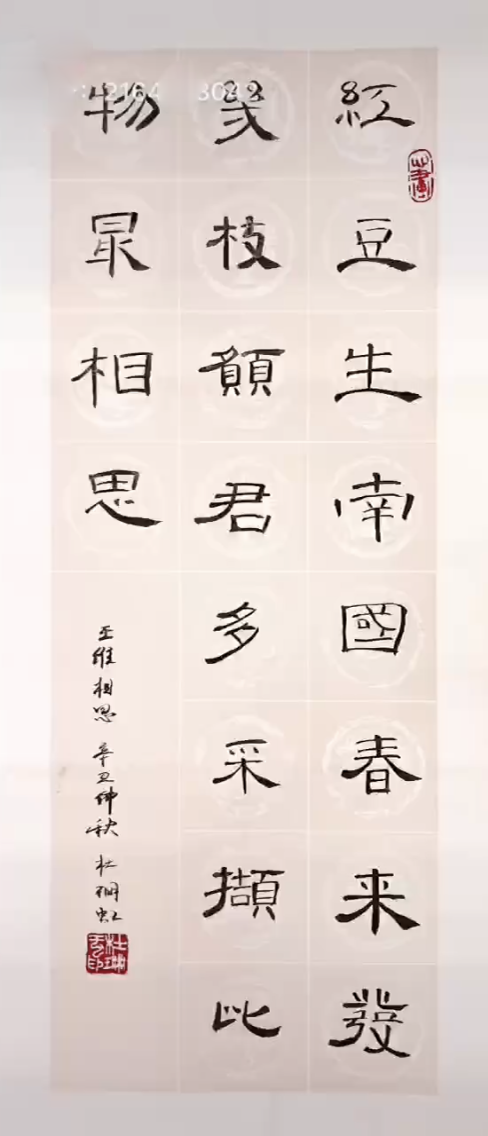 紅豆生南國春来發
幾枝願君多采擷此
物最相思
王維相思 辛丑仲秋 杜
2164 304